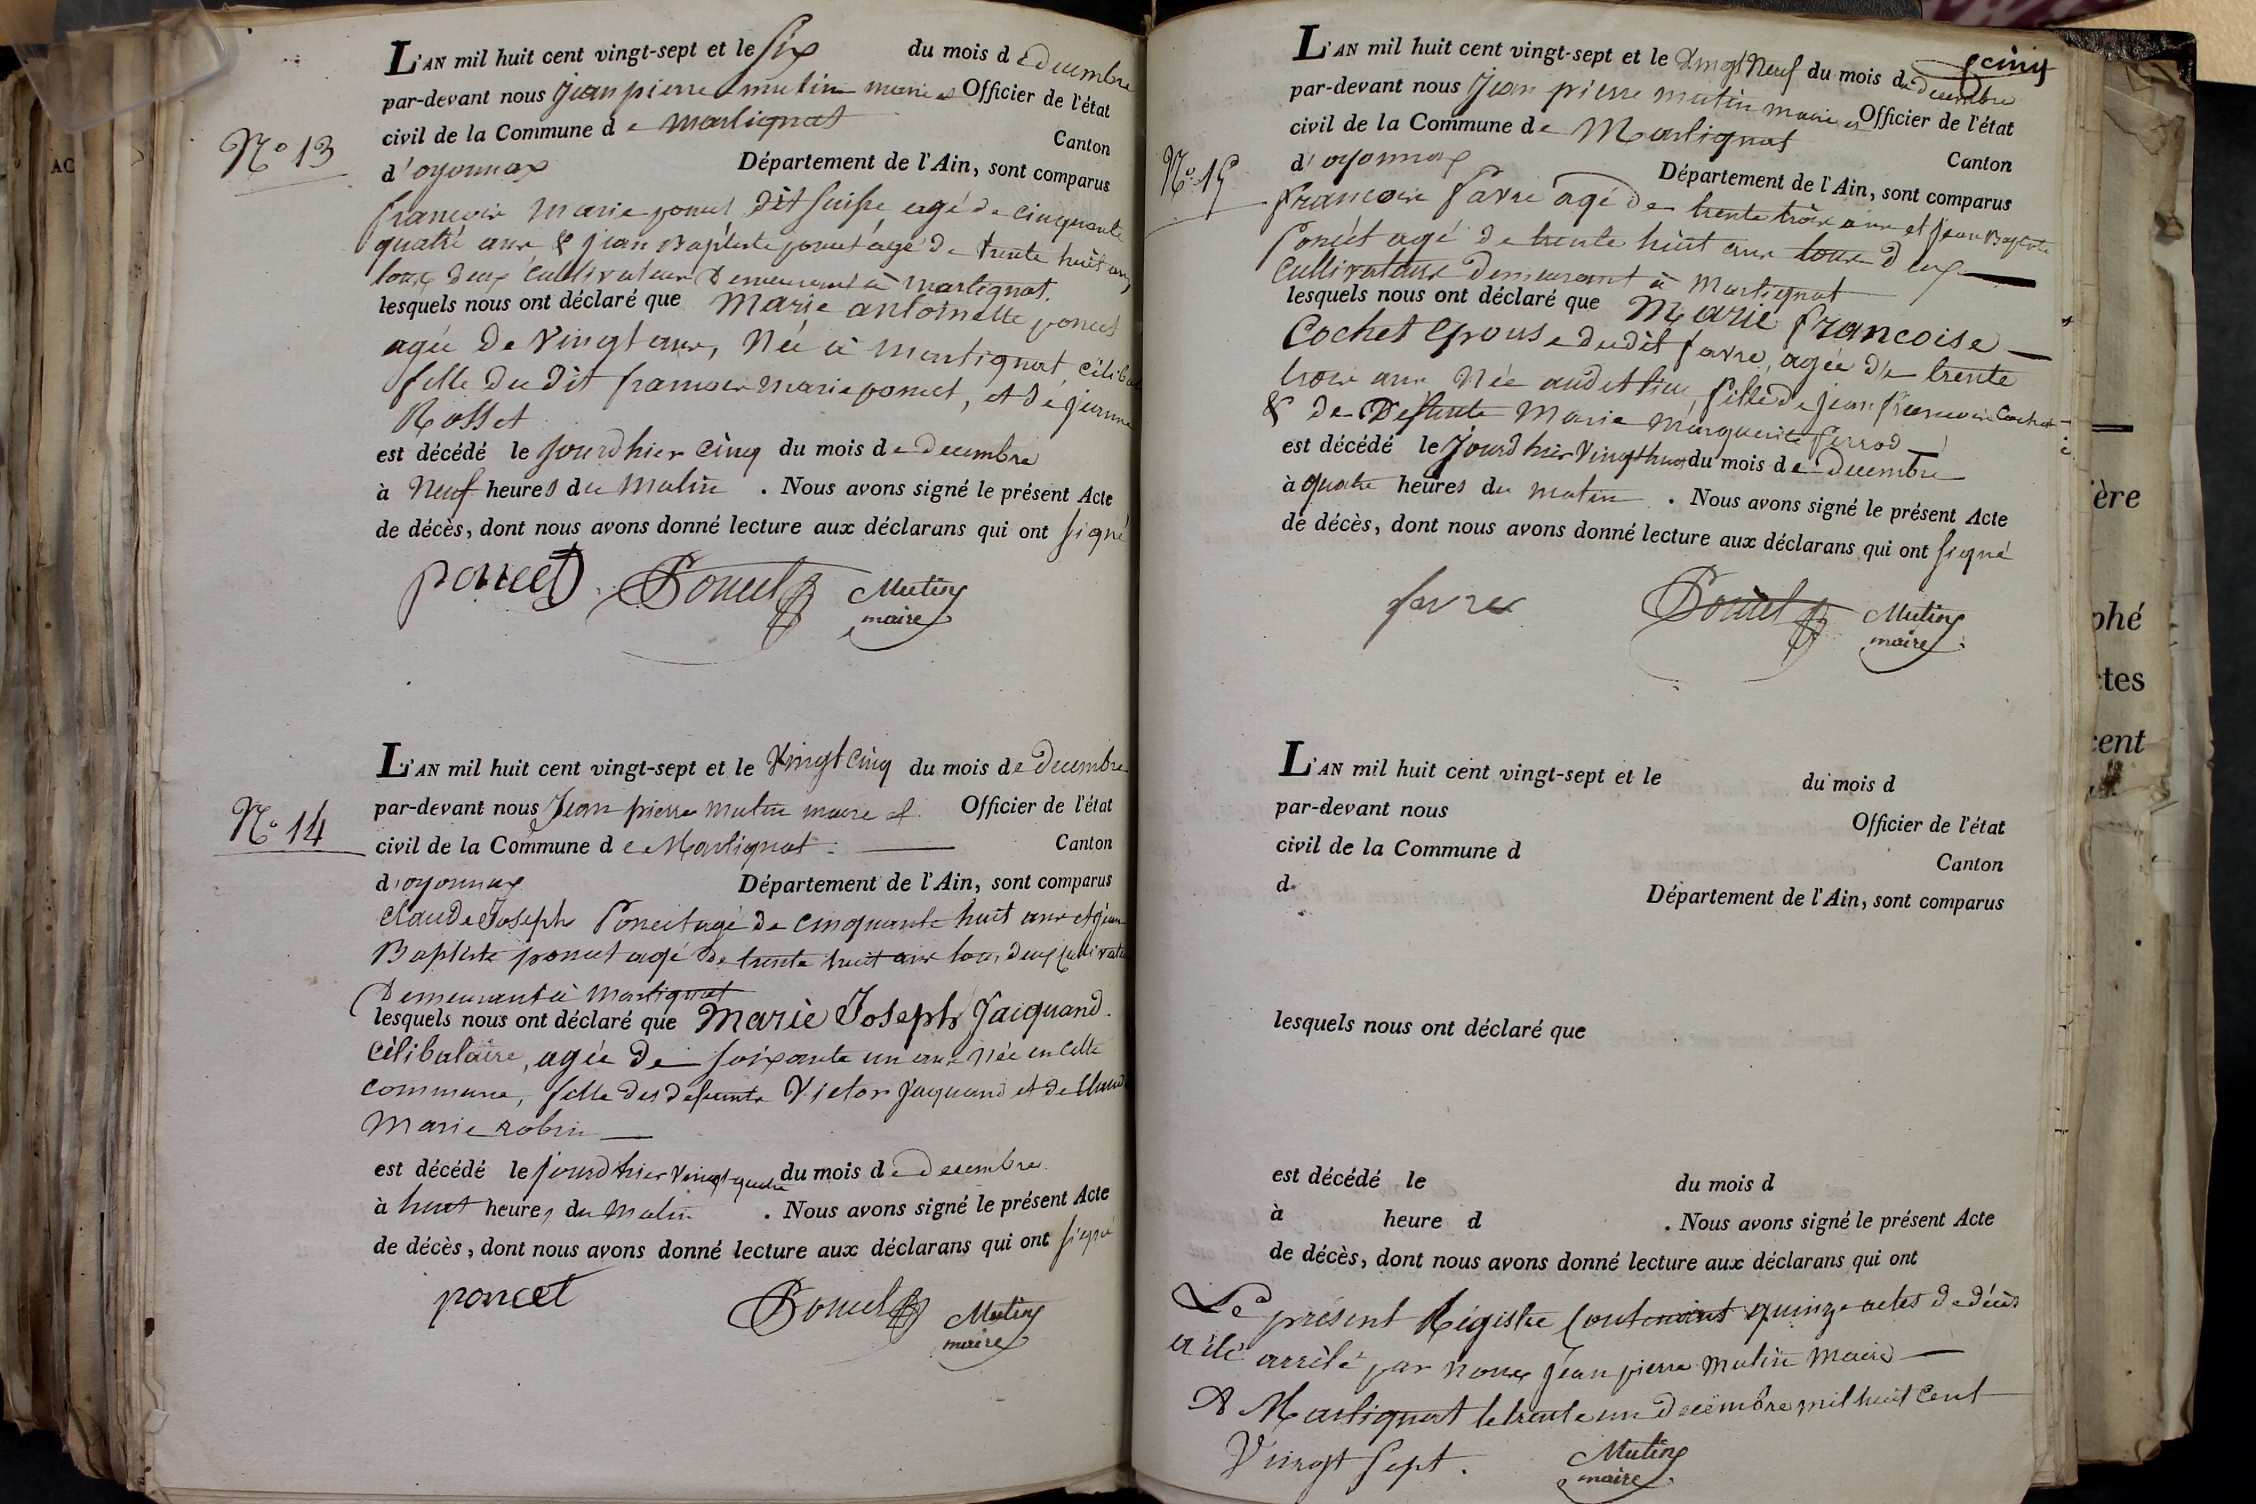 AC
L'AN mil huit cent vingt-sept et le Six du mois de decembre
par-devant nous jean pierre mutin maire et Officier de l'état
civil de la Commune de martignat Canton
N.o 13
d'oyonnax Département de l'Ain, sont comparus
francois marie poncet dit suisse agé de cinquante
quatre ans & jean Baptiste poncet agé de trente huit ans
tous deux cultivateurs Demeurant à martignat.
lesquels nous ont déclaré que Marie antoinette poncet
agée de Vingt ans, Née à martignat, célibat
fille du dit francois marie poncet, et de jeanne
Rosset
est décédé le jourdhier cinq du mois de decembre
à Neuf heures du matin . Nous avons signé le présent Acte
de décès, dont nous avons donné lecture aux déclarans qui ont signé
poncet Poncet Mutin
maire
L'AN mil huit cent vingt-sept et le Vingt cinq du mois de decembre
par-devant nous Jean pierre mutin maire et Officier de l'état
N.o 14
civil de la Commune de Martignat Canton
d'oyonnax Département de l'Ain, sont comparus
claude Joseph Poncet agé de cinquante huit ans et jean
Baptiste poncet agé de trente huit ans tous deux cultivate
Demeurant à Martignat
lesquels nous ont déclaré que Marie Joseph Jacquand.
Célibataire, agée de soixante un ans née en cette
commune, fille des defunts Victor Jaquand et de Claud
Marie robin
est décédé le jourdhier Vingt quatre du mois de decembre
à huit heures du Matin . Nous avons signé le présent Acte
de décès, dont nous avons donné lecture aux déclarans qui ont signé
poncet Poncet Mutin
maire
cinq
L'AN mil huit cent vingt-sept et le Vingt Neuf du mois de decembre
par-devant nous Jean pierre mutin maire et Officier de l'état
civil de la Commune de Martignat Canton
N.o 15
d'oyonnax Département de l'Ain, sont comparus
francois favre agé de trente trois ans et jean Baptiste
Poncet agé de trente huit ans tous deux
Cultivateurs Demeurant à Martignat
lesquels nous ont déclaré que Marie francoise
Cochet Epouse du dit favre, agée de trente
trois ans Née audit lieu, fille de jean francois Cochet
& de Defunte Marie Marguerite ferrod
est décédé le jourdhier Vingt huit du mois de decembre
à quatre heures du matin . Nous avons signé le présent Acte
de décès, dont nous avons donné lecture aux déclarans qui ont signé
favre Poncet Mutin
maire
L'AN mil huit cent vingt-sept et le du mois d
par-devant nous Officier de l'état
civil de la Commune d Canton
d Département de l'Ain, sont comparus
lesquels nous ont déclaré que
est décédé le du mois d
à heure d . Nous avons signé le présent Acte
de décès, dont nous avons donné lecture aux déclarans qui ont
Le présent Régistre Contenant quinze actes de décès
a été arrêté par nous Jean pierre Mutin Maire
A Martignat le trente un decembre mil huit Cent
Vingt Sept.
Mutin
maire
ère
phé
ctes
cent